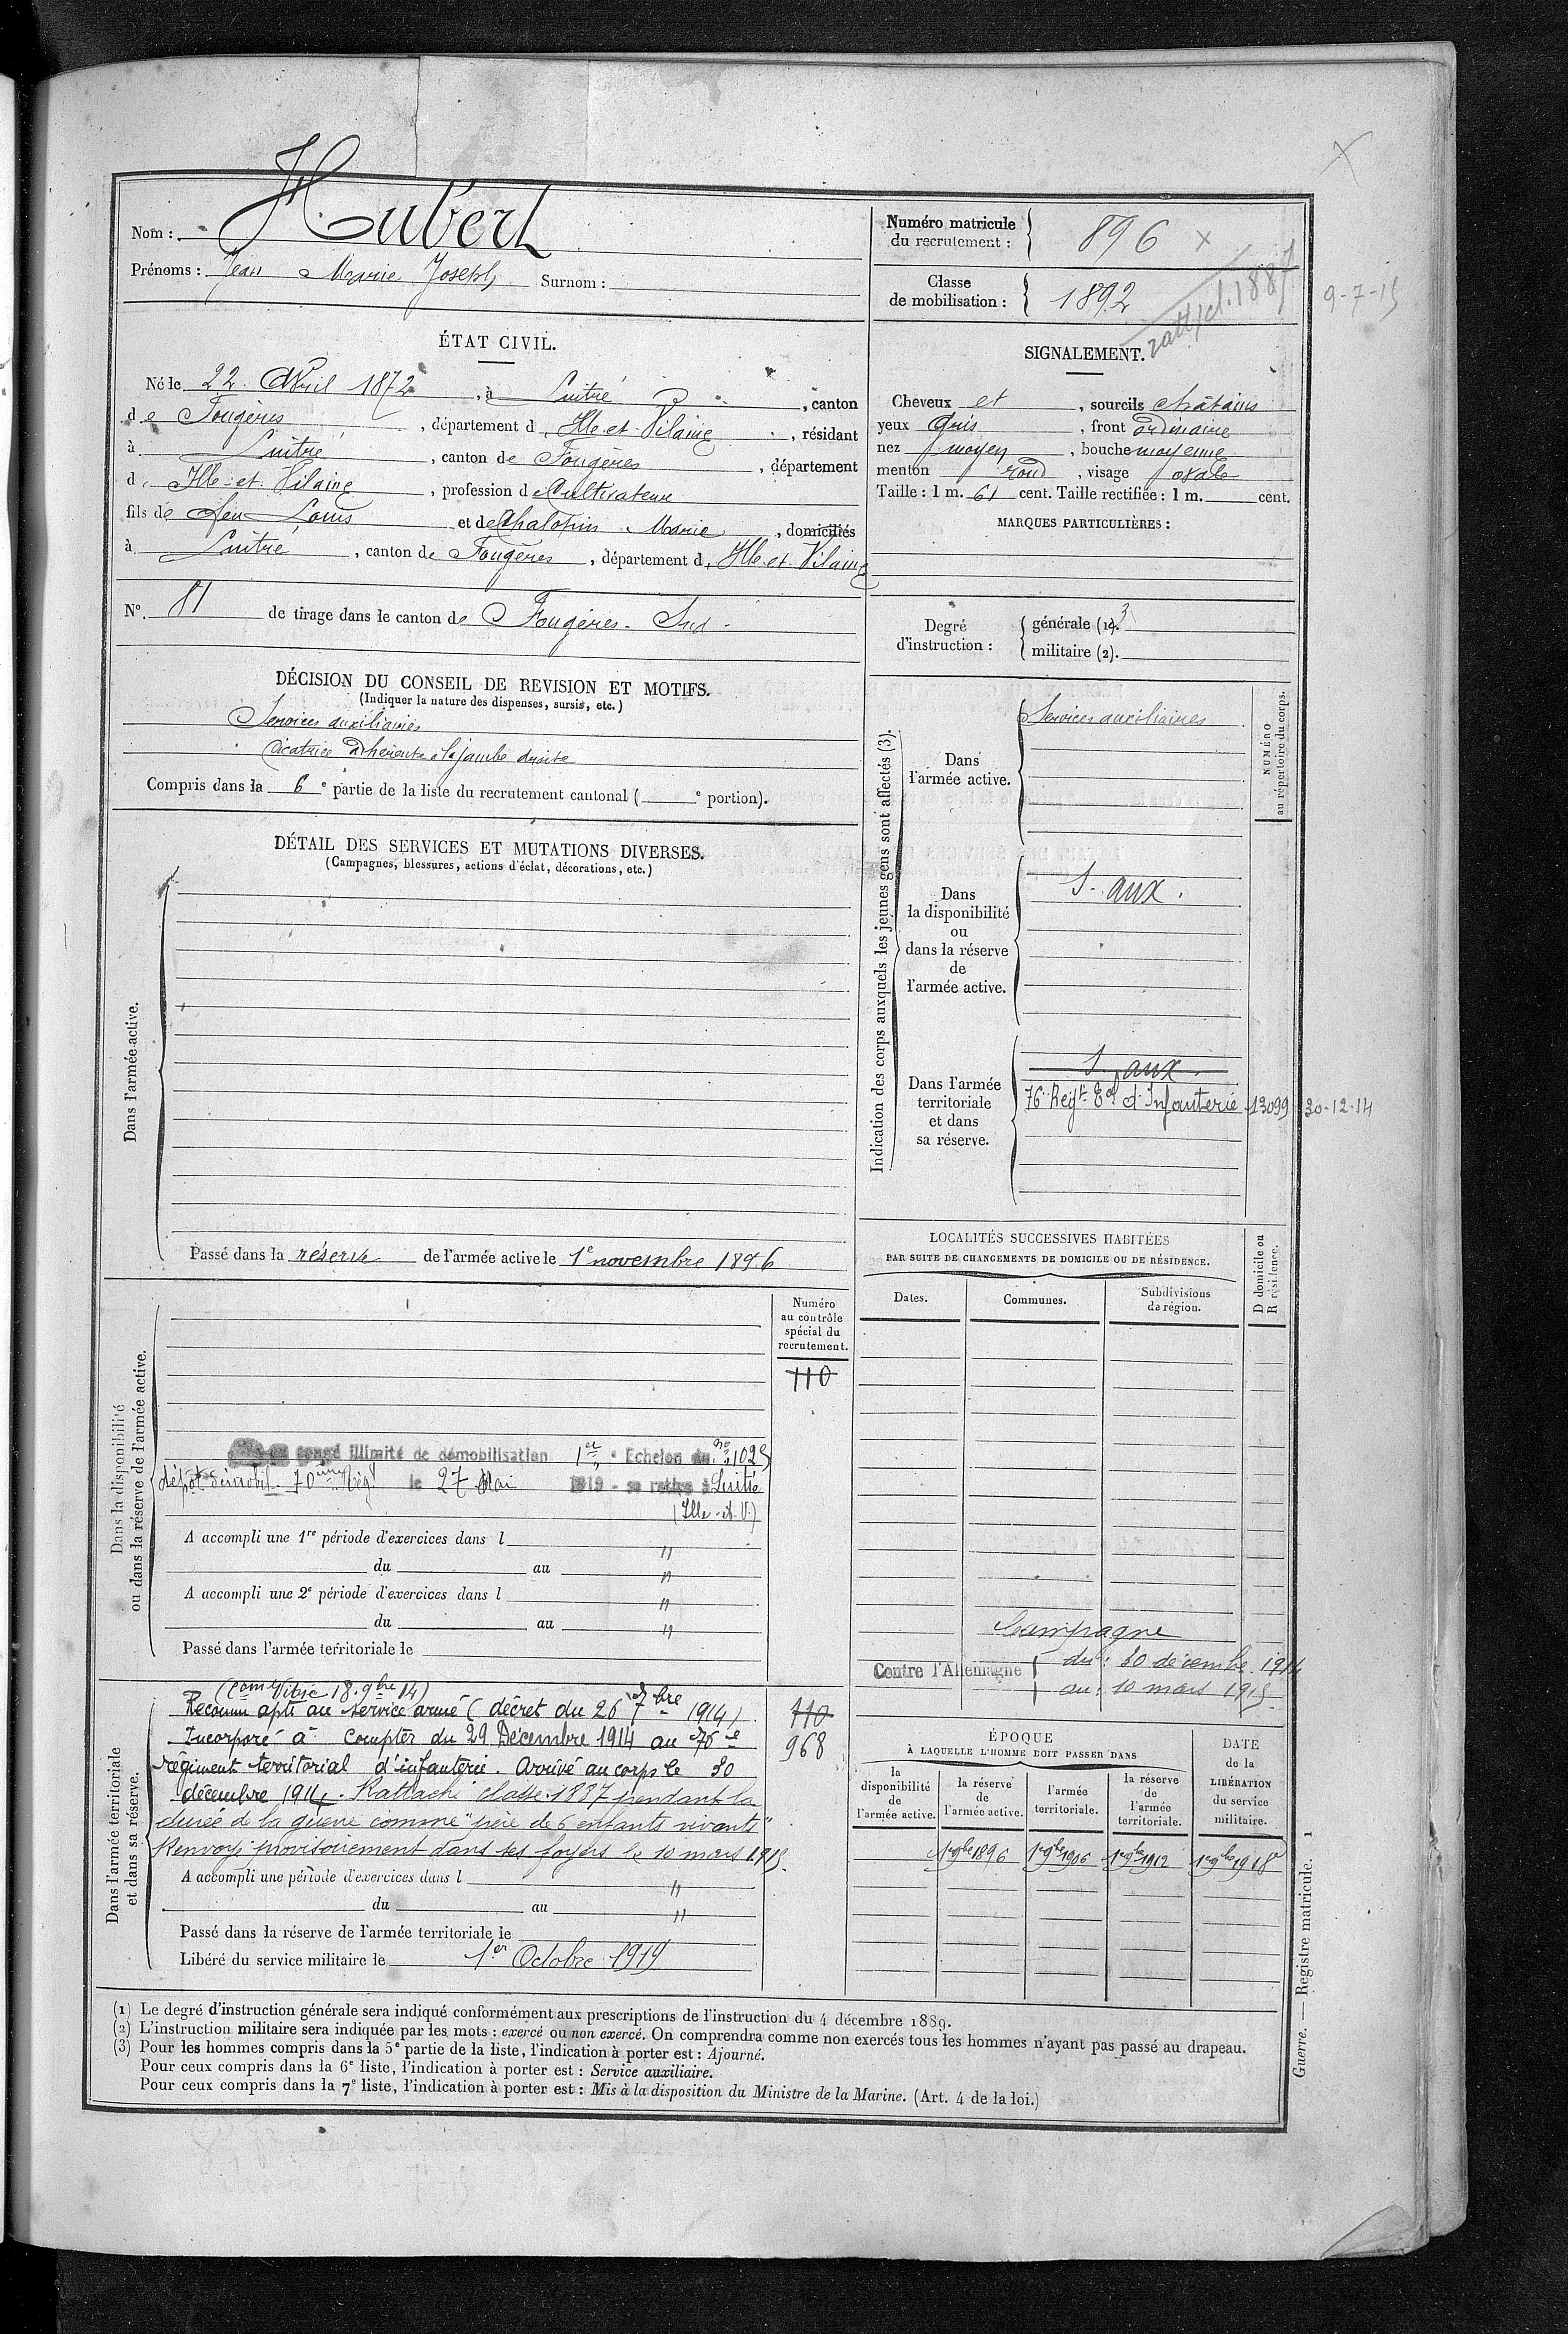 Nom : Hubert
Prénoms : Jean Marie Joseph Surnom :
Numéro matricule du recrutement : 896 x
Classe de mobilisation : 1892
ratt/cl. 1887
9-7-15
ÉTAT CIVIL.
Né le 22 Avril 1872, à Luitré, canton
de Fougères, département d Ille-et-Vilaine, résidant
à Luitré, canton de Fougères, département
d Ille-et-Vilaine, profession de Cultivateur
fils de feu Louis et de Chalopin Marie, domiciliés
à Luitré, canton de Fougères, département d Ille-et-Vilaine
N° 81 de tirage dans le canton de Fougères-Sud.
SIGNALEMENT.
Cheveux et, sourcils châtains
yeux gris, front ordinaire
nez moyen, bouche moyenne
menton rond, visage ovale
Taille : 1 m. 61 cent. Taille rectifiée : 1 m. cent.
MARQUES PARTICULIÈRES :
Degré d'instruction :
générale (1). 3
militaire (2).
DÉCISION DU CONSEIL DE REVISION ET MOTIFS.
(Indiquer la nature des dispenses, sursis, etc.)
Services auxiliaires
Cicatrice adhérente à la jambe droite
Compris dans la 6e partie de la liste du recrutement cantonal ( e portion).
DÉTAIL DES SERVICES ET MUTATIONS DIVERSES.
(Campagnes, blessures, actions d'éclat, décorations, etc.)
Dans l'armée active.
Passé dans la réserve de l'armée active le 1e novembre 1896
Indication des corps auxquels les jeunes gens sont affectés (3).
NUMÉRO au répertoire du corps.
Dans l'armée active.
Services auxiliaires
Dans la disponibilité ou dans la réserve de l'armée active.
S. aux.
Dans l'armée territoriale et dans sa réserve.
S. aux.
76e Regt Eal d'Infanterie 13099 30-12-14
Dans la disponibilité ou dans la réserve de l'armée active.
Numéro au contrôle spécial du recrutement.
110
congé illimité de démobilisation 1er Echelon no 1025
dépôt démobil. 70ème Régt le 27 Mai 1919 - se retire à Luitré
(Ille-et-V.)
A accompli une 1re période d'exercices dans l "
du au "
A accompli une 2e période d'exercices dans l "
du au "
Passé dans l'armée territoriale le
LOCALITÉS SUCCESSIVES HABITÉES
PAR SUITE DE CHANGEMENTS DE DOMICILE OU DE RÉSIDENCE.
Dates. Communes. Subdivisions de région. D domicile ou R résidence.
Campagne
Contre l'Allemagne
du : 30 décembre 1914
au : 10 mars 1915
Dans l'armée territoriale et dans sa réserve.
(Comon Vitré 18.9bre 14)
Reconnu apte au service armé (décret du 26 7bre 1914)
Incorporé à compter du 29 Décembre 1914 au 76e
régiment territorial d'infanterie. Arrivé au corps le 30
décembre 1914. Rattaché classe 1887 pendant la
durée de la guerre comme "père de 6 enfants vivants"
Renvoyé provisoirement dans ses foyers le 10 mars 1915.
110
968
A accompli une période d'exercices dans l "
du au "
Passé dans la réserve de l'armée territoriale le
Libéré du service militaire le 1er Octobre 1919
ÉPOQUE
À LAQUELLE L'HOMME DOIT PASSER DANS
la disponibilité de l'armée active. la réserve de l'armée active. l'armée territoriale. la réserve de l'armée territoriale.
DATE de la LIBÉRATION du service militaire.
1e 9bre 1896 1e 9bre 1906 1e 9bre 1912 1e 9bre 1918
(1) Le degré d'instruction générale sera indiqué conformément aux prescriptions de l'instruction du 4 décembre 1889.
(2) L'instruction militaire sera indiquée par les mots : exercé ou non exercé. On comprendra comme non exercés tous les hommes n'ayant pas passé au drapeau.
(3) Pour les hommes compris dans la 5e partie de la liste, l'indication à porter est : Ajourné.
Pour ceux compris dans la 6e liste, l'indication à porter est : Service auxiliaire.
Pour ceux compris dans la 7e liste, l'indication à porter est : Mis à la disposition du Ministre de la Marine. (Art. 4 de la loi.)
Guerre. — Registre matricule. 1